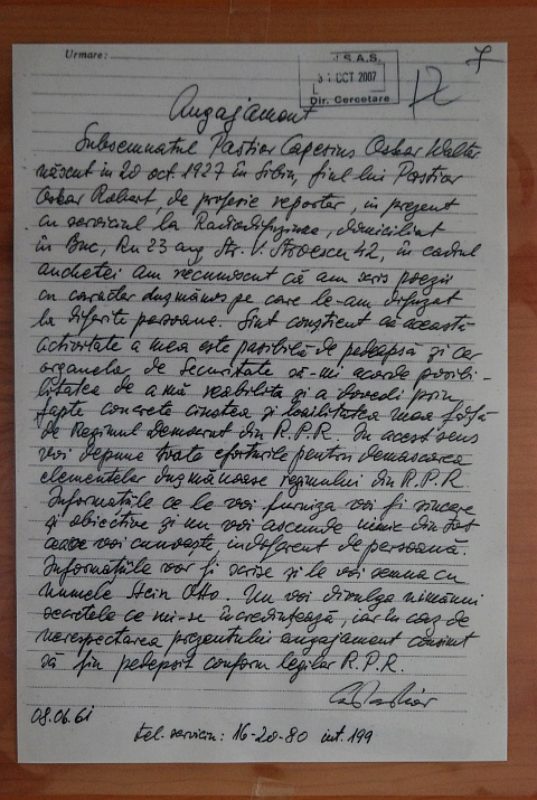 Urmare:
S.A.S.
31 OCT 2007
Dir. Cercetare
7
12
Angajament
Subsemnatul Pastior Capesius Oskar Walter
născut in 20 oct. 1927 în Sibiu, fiul lui Pastior
Oskar Robert, de profesie reporter, in prezent
cu serviciul la Radiodifuziune, domiciliat
în Buc, Rn 23 aug Str. V. Stroescu 42, în cadrul
anchetei am recunoscut că am scris poezii
cu caracter dușmănos pe care le-am difuzat
la diferite persoane. Sînt conștient că această
activitate a mea este pasibilă de pedeapsă și cer
organelor de Securitate să-mi acorde posibi-
litatea de a mă reabilita și a dovedi prin
fapte concrete cinstea și loialitatea mea față
de Regimul democrat din R.P.R. In acest sens
voi depune toate eforturile pentru demascarea
elementelor dușmănoase regimului din R.P.R.
Informațiile ce le voi furniza voi fi sincere
și obiective și nu voi ascunde nimic din tot
voi cunoaște, indiferent de persoană.
Informațiile vor fi scrise și le voi semna cu
numele Stein Otto. Nu voi divulga nimănui
secretele ce mi-se încredințează, iar în caz de
nerespectarea prezentului angajament consimt
să fiu pedepsit conform legilor R.P.R.
08.06.61
tel. serviciu: 16-20-80 int. 199